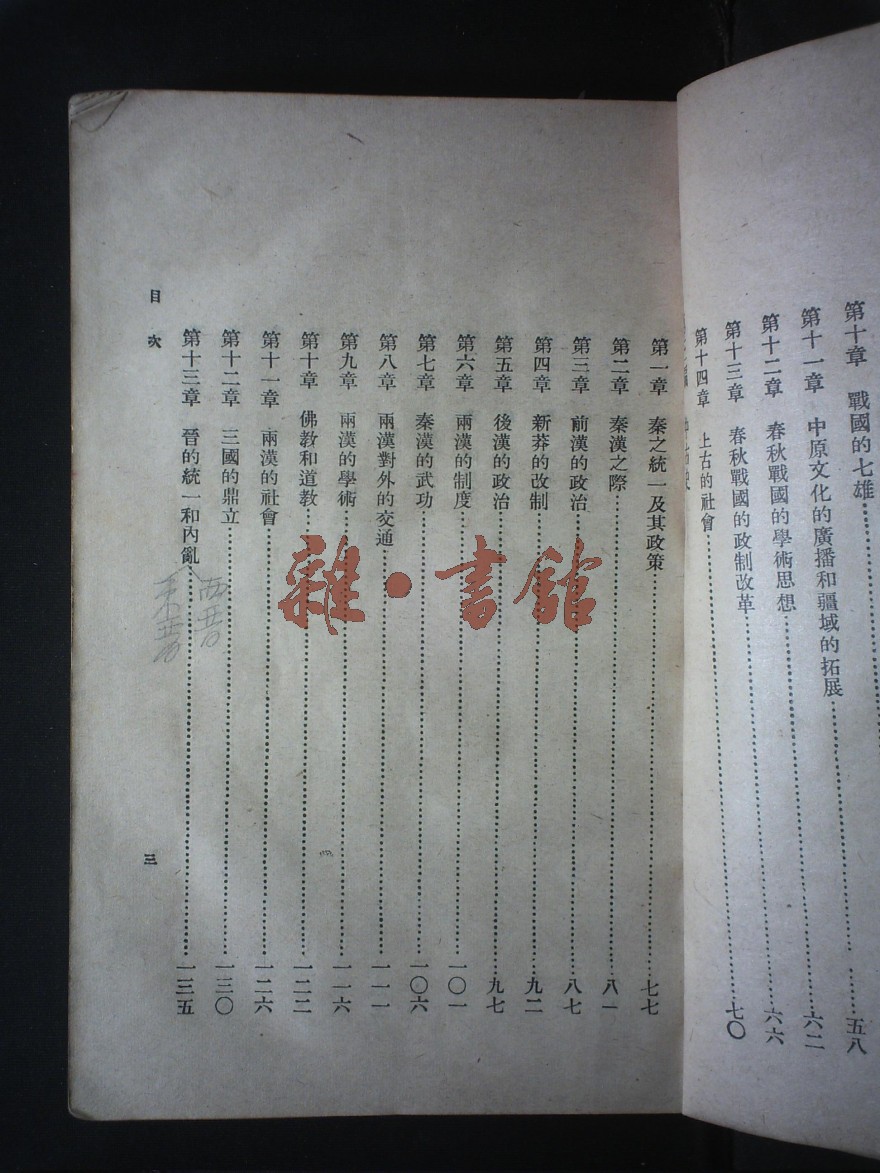 第十章　戰國的七雄……五八
第十一章　中原文化的廣播和疆域的拓展……六二
第十二章　春秋戰國的學術思想……六六
第十三章　春秋戰國的政制改革……七〇
第十四章　上古的社會……
第一章　秦之統一及其政策……七七
第二章　秦漢之際……八一
第三章　前漢的政治……八七
第四章　新莽的改制……九二
第五章　後漢的政治……九七
第六章　兩漢的制度……一〇一
第七章　秦漢的武功……一〇六
第八章　兩漢對外的交通……一一一
第九章　兩漢的學術……一一六
第十章　佛教和道教……一二二
第十一章　兩漢的社會……一二六
第十二章　三國的鼎立……一三〇
第十三章　晉的統一和內亂……一三五
西晋
東晋
目次
三
雜·書館